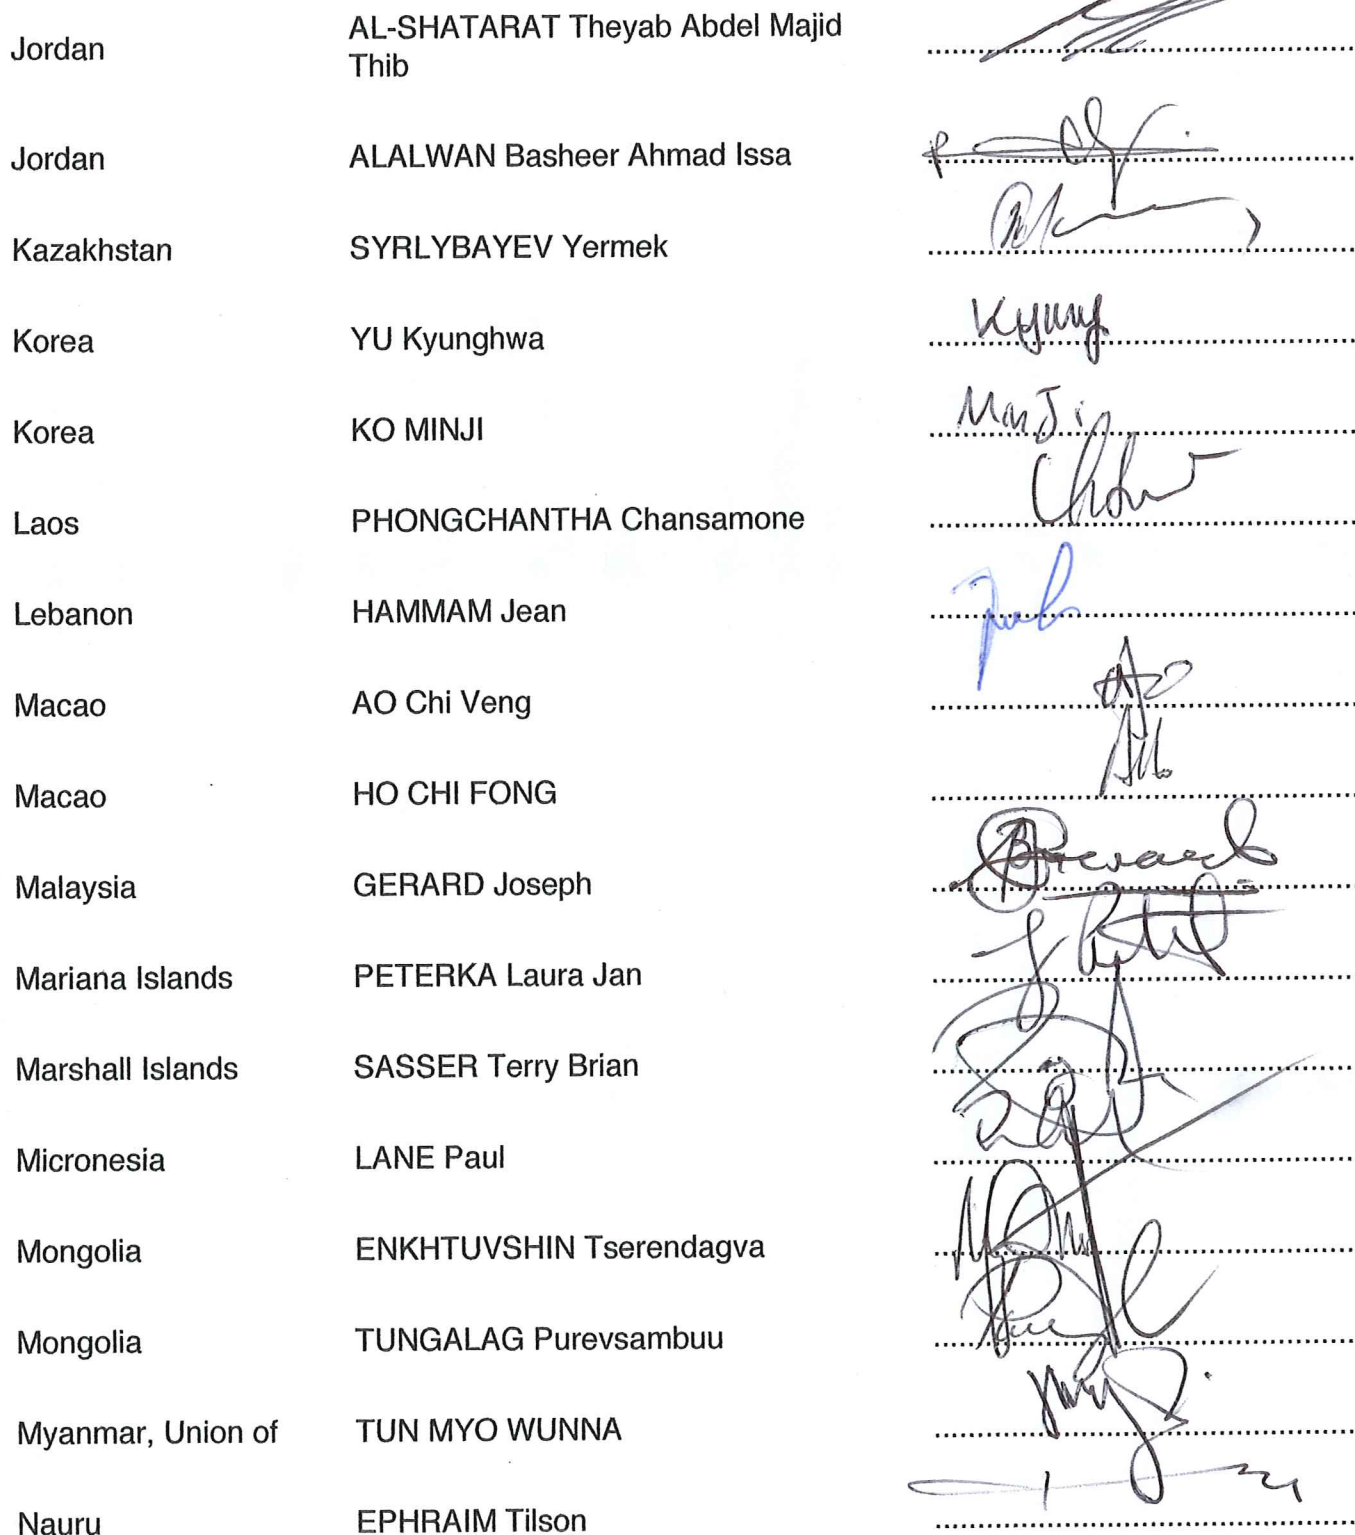 Jordan AL-SHATARAT Theyab Abdel Majid
Thib
Jordan ALALWAN Basheer Ahmad Issa
Kazakhstan SYRLYBAYEV Yermek
Korea YU Kyunghwa Kyung
Korea KO MINJI MinJi
Laos PHONGCHANTHA Chansamone
Lebanon HAMMAM Jean
Macao AO Chi Veng AO
Macao HO CHI FONG
Malaysia GERARD Joseph
Mariana Islands PETERKA Laura Jan
Marshall Islands SASSER Terry Brian
Micronesia LANE Paul
Mongolia ENKHTUVSHIN Tserendagva
Mongolia TUNGALAG Purevsambuu
Myanmar, Union of TUN MYO WUNNA
Nauru EPHRAIM Tilson